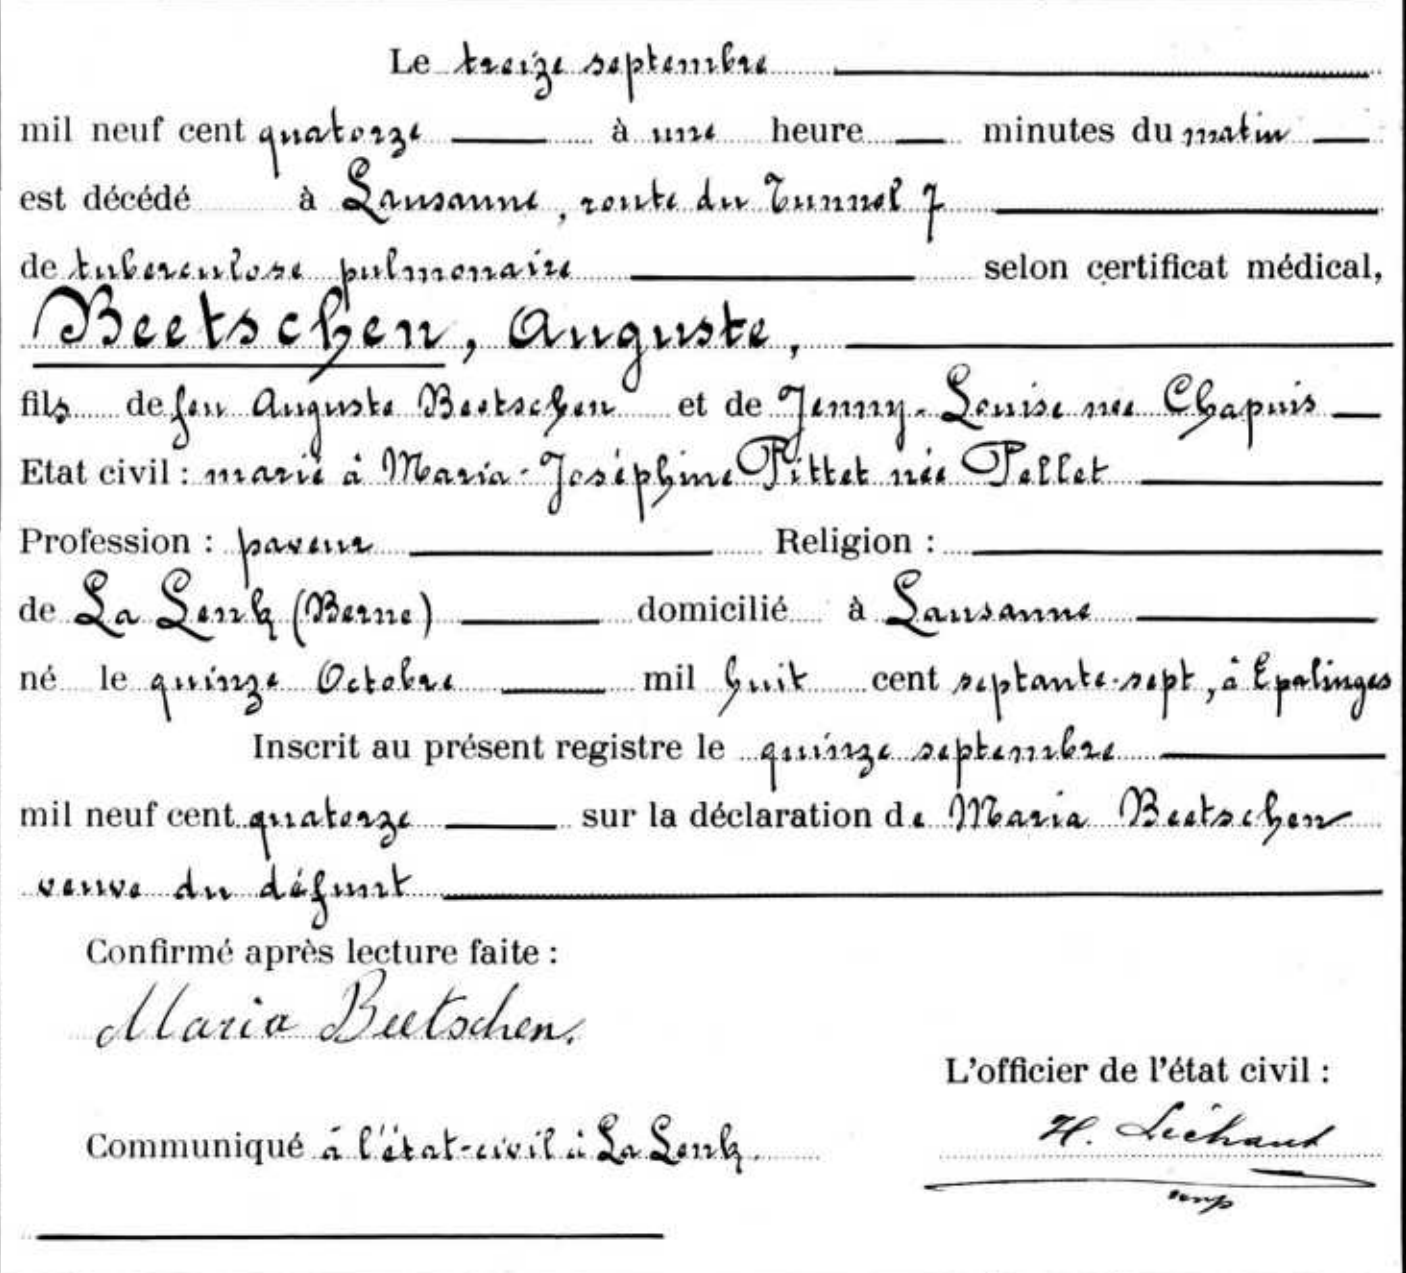 Le treize septembre
mil neuf cent quatorze à une heure minutes du matin
est décédé à Lausanne, route du Tunnel 7
de tuberculose pulmonaire selon certificat médical,
Beetschen, Auguste,
fils de feu Auguste Beetschen et de Jenny-Louise née Chapuis
Etat civil : marié à Maria-Joséphine Pittet née Pellet
Profession : paveur Religion :
de La Lenk (Berne) domicilié à Lausanne
né le quinze Octobre mil huit cent septante-sept, à Epalinges
Inscrit au présent registre le quinze septembre
mil neuf cent quatorze sur la déclaration de Maria Beetschen
veuve du défunt
Confirmé après lecture faite :
Maria Beetschen.
L'officier de l'état civil :
Communiqué à l'état-civil à La Lenk.
H.